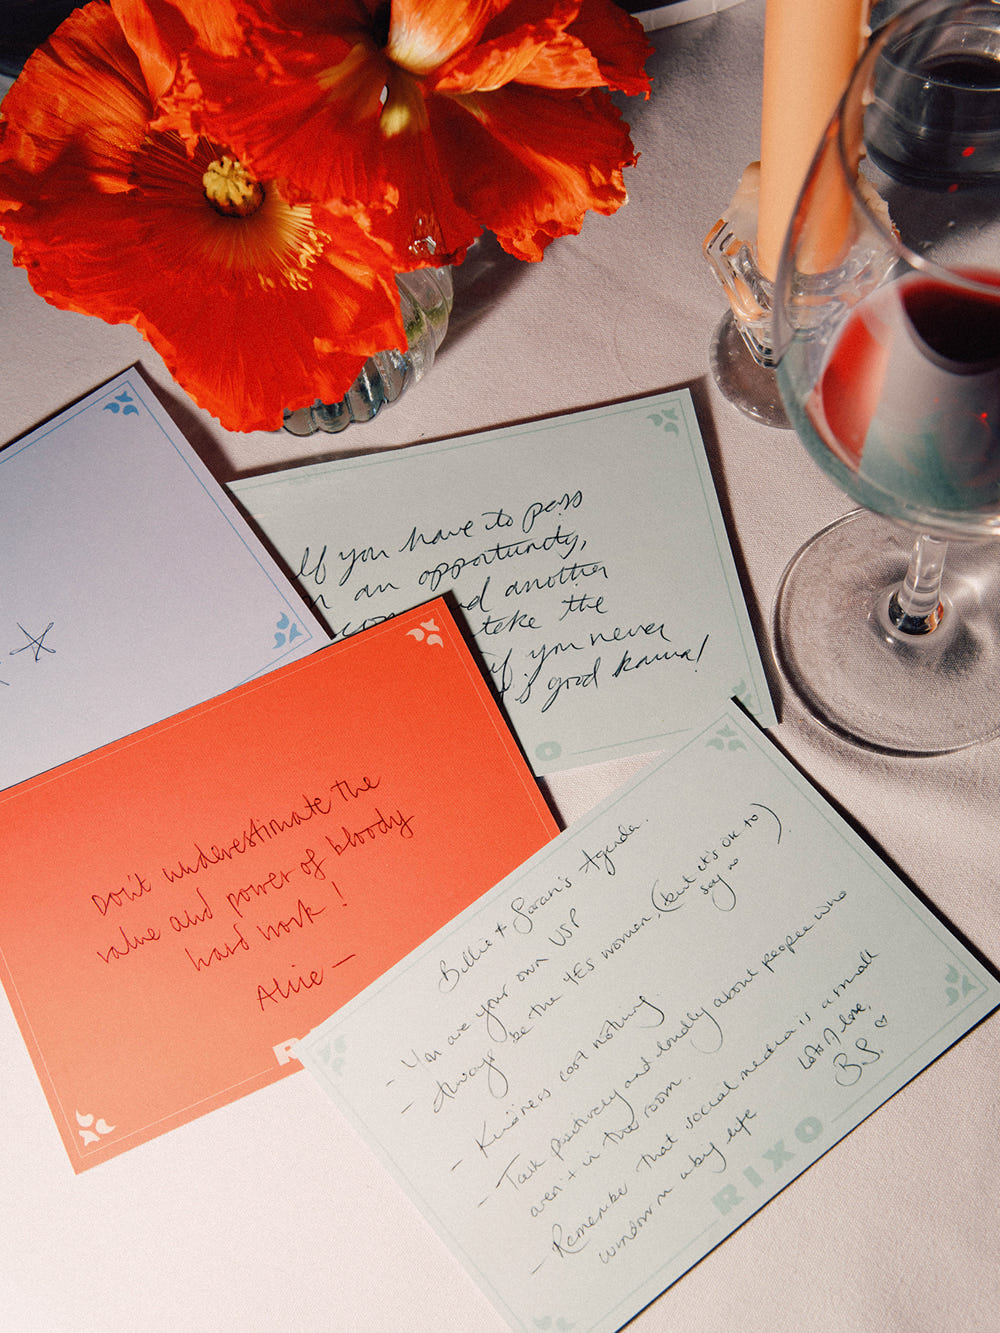 If you have to pass
an opportunity,
another
take the
if you never
good karma!
Don't underestimate the
value and power of bloody
hard work!
Alice —
Billie + Sarah's Agenda.
- You are your own USP
- Always be the YES women, (but it's OK to)
say no
- Kindness cost nothing
- Talk positively and loudly about people who
aren't in the room.
- Remember that social media is a small
window in a big life
Lots of love,
B.S. ♡
RIXO